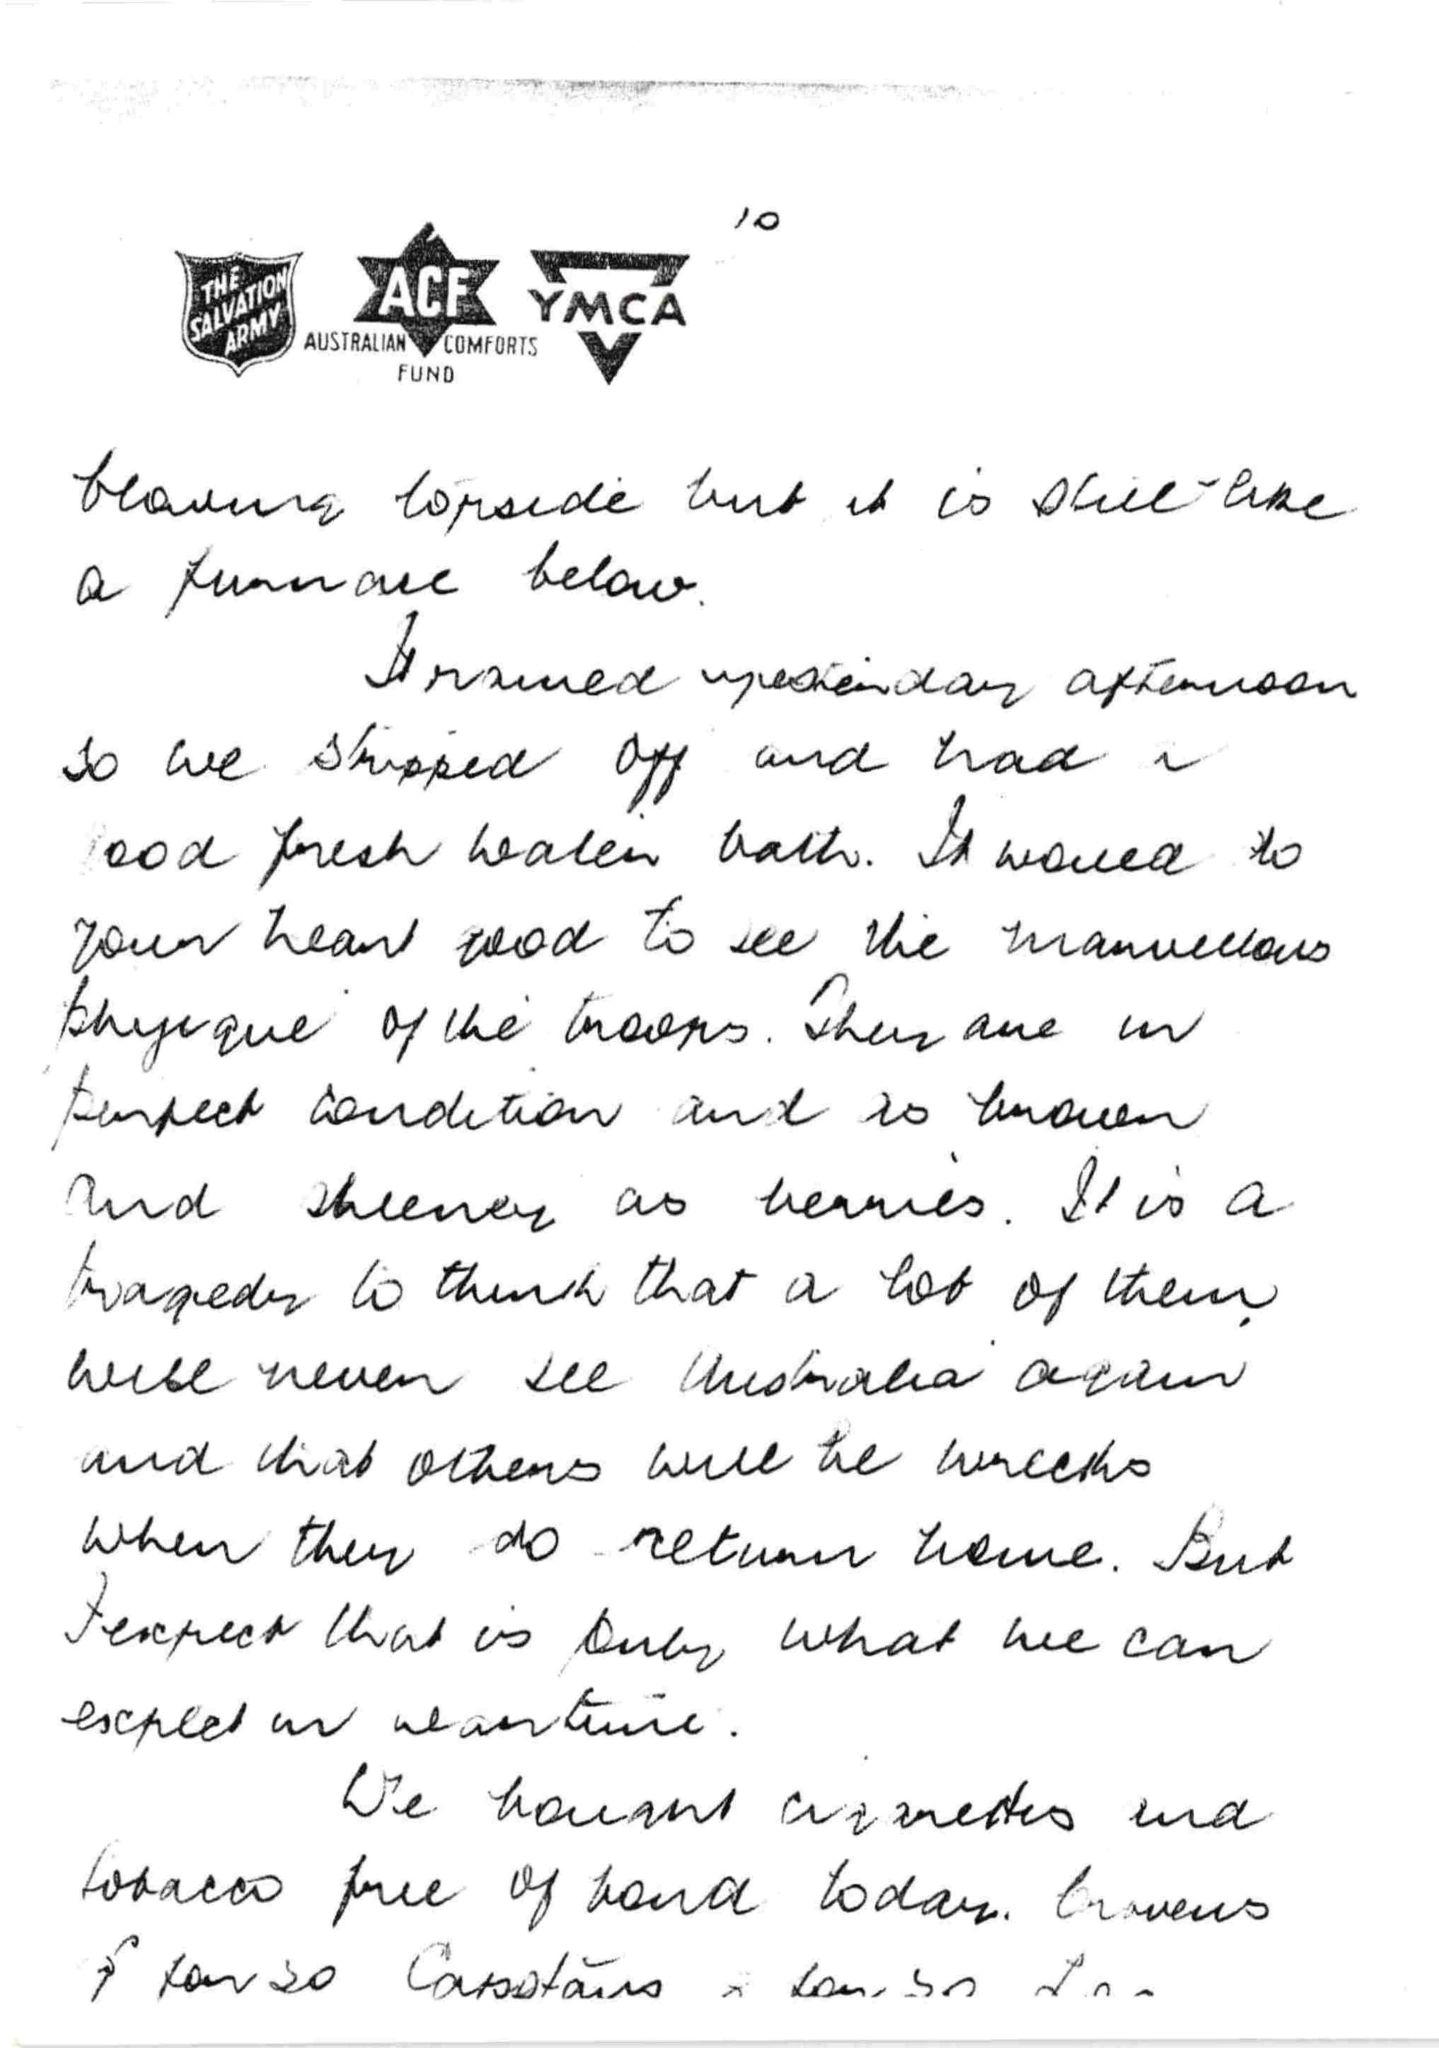 10
THE SALVATION ARMY
ACF
AUSTRALIAN COMFORTS FUND
YMCA
blowing topside but it is still like
a furnace below.
It rained yesterday afternoon
so we stripped off and had a
ood fresh water bath. It would to
your heart good to see the marvellous
physique of the troops. They are in
perfect condition and as brown
and sheeney as berries. It is a
tragedy to think that a lot of them
will never see Australia again
and that others will be wrecks
when they do return home. But
I expect that is only what we can
expect in wartime.
We bought cigarettes and
tobacco free of bond today. Cravens
for 50 Capstans for 50